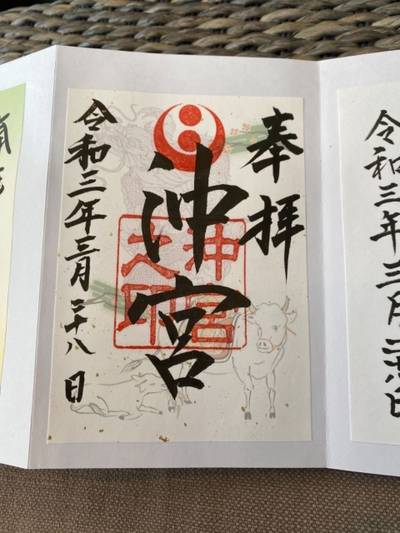 奉拝
沖宮
沖宮之印
令和三年三月二十八日
令和三年三月二十八日